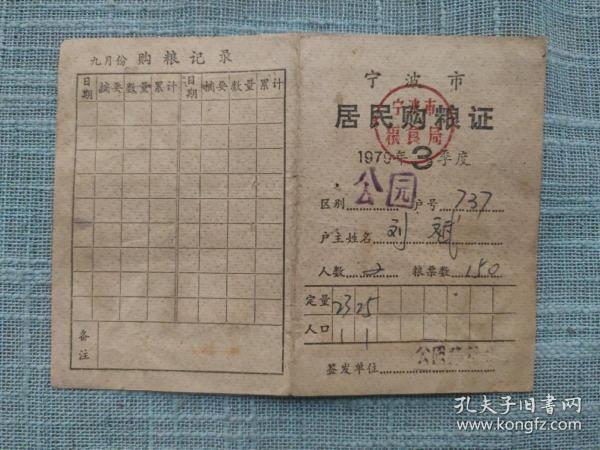 九月份 购粮记录
日期 摘要 数量 累计 日期 摘要 数量 累计
备注
宁波市
居民购粮证
宁波市
粮食局
1979年3季度
区别 公园 户号 737
户主姓名 刘斌
人数 2 粮票数 150
定量 23 25
人口 1 1
签发单位 公园
孔夫子旧书网
www.kongfz.com